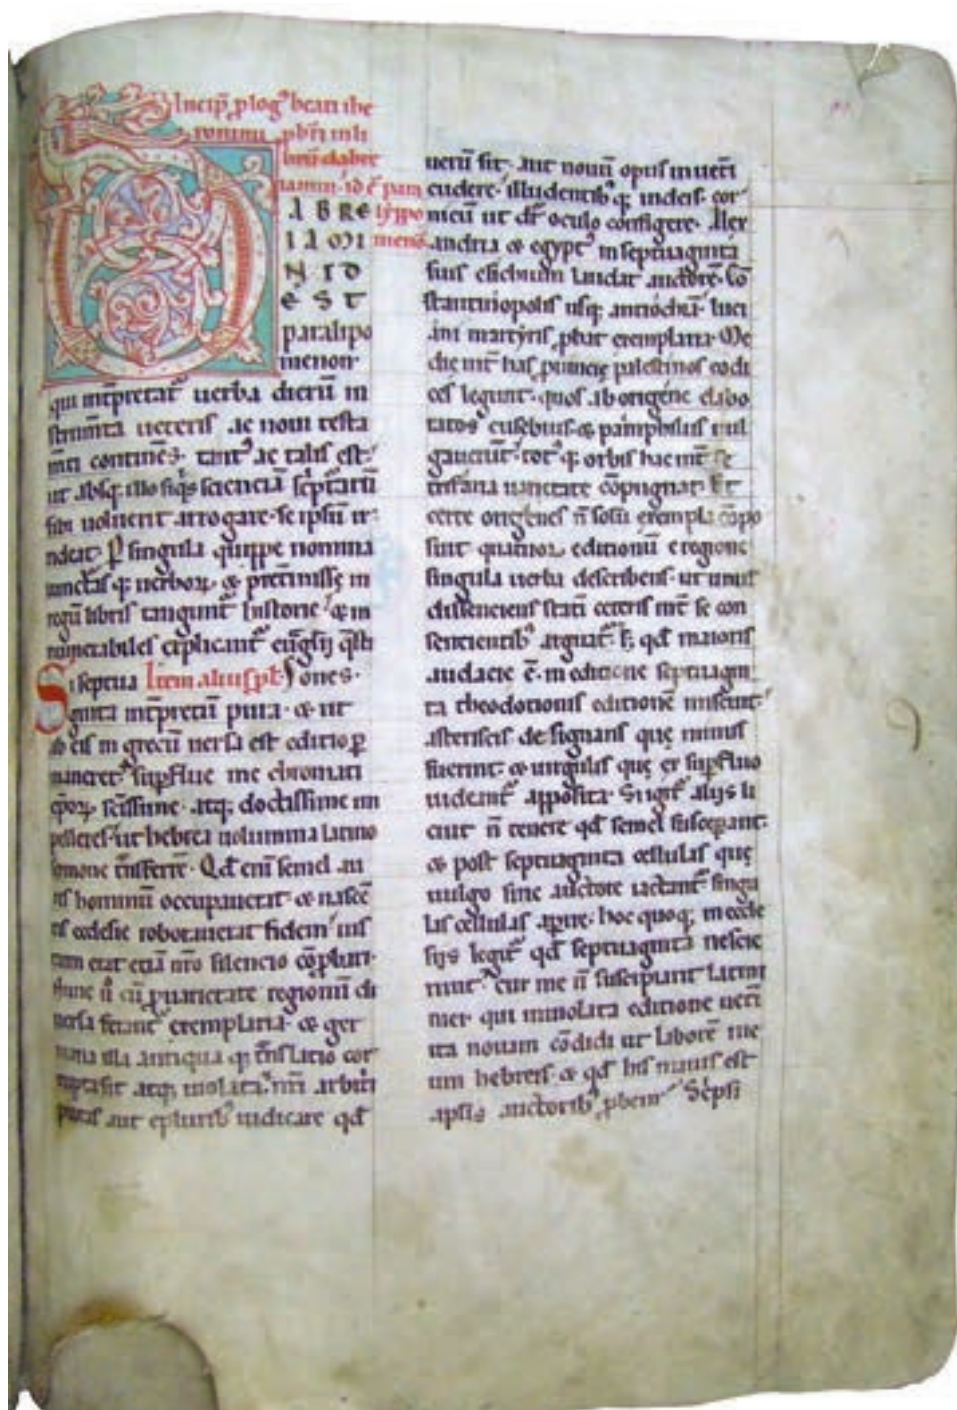 Incip̅ plog᾽ beati ihe
ronimi pbr̅i in li
brū dabre
iamin· id ē̅ pam
ABRE lyppo
IAMI menō
NID
EST
paralipo
menon·
qui int̅pretat᾽ uerba dierū in
strum̅ta ueteris ac noui testa
m̅ti continēs· tant᾽ ac talis est·
ut absq; illo siq̇s scienciā sc̅ptarū
sibi uoluerit arrogare· se ipsū ir
rideat· P̱ singula quippe nomina
iunctas q; uerboꝝ· & pret̅missę in
regū libris tangunt᾽ historie· & in
numerabiles explicant᾽ eu̅glij q̅sti
Si septua Item alius pl᾽· ones·
ginta int̅pretū pura· & ut
ab eis in grecū uersa est editio ꝑ
maneret· suꝑflue me chromati
ep̅oꝝ sc̅issime· atq; doctissime im
pelleres· ut hebrea uolumina latino
sermone t̅nsferrē· Qd̅ eni̅ semel au
res hominū occupauerat· & nascē
tis ecclesie roborauerat fidem· ius
tum erat etiā nr̅o silencio cōprobari·
Nunc u̇ cū ꝓ uarietate regionū di
uersa ferant᾽ exemplaria· & ger
mana illa antiqua q; t̅nslatio cor
rupta sit atq; uiolata· nr̅i arbitrii
putas aut e plurib᾽ iudicare qd̅
uerū sit· aut nouū opus in ueti̅
cudere· illudentib᾽ q; iudeis· cor
nicū ut dr̅ oculo configere· Alex
andria & egypt᾽ in septuaginta
suis esichium laudat auctorē· Cō
stantinopolis usq; antiochiā luci
ani martyris ꝓbat exemplaria· Me
die int̅ has prouincię palestinos codi
ces legunt· quos ab origene elabo
ratos eusebius· & pamphilus uul
gauerūt· tot᾽ q; orbis hac int̅ se
trifaria uarietate cōpugnat· Et
certe origenes n̅ solū exempla cōpo
suit quatuor editionū e regione
singula uerba describens· ut unus
dissenciens stati̅ ceteris int̅ se con
sencientib᾽ arguat᾽· s; qd̅ maioris
audacie ē· in editione septuagin
ta theodotionis editionē miscuit·
asteriscis designans que minus
fuerint· & uirgulis que ex suꝑfluo
uideant᾽ apposita· Si igit᾽ alijs li
cuit n̅ tenere qd̅ semel susceperant·
& post septuaginta cellulas que
uulgo sine auctore iactant᾽ singu
las cellulas aꝑuere· hoc quoq; in eccle
sijs legit᾽ qd̅ septuaginta nescie
runt· cur me n̅ suscipiant latini
mei· qui inuiolata editione uete̅
ita nouam cōdidi ut laborē me
um hebreis· & qd̅ his maius est
apl̅is auctorib᾽ ꝓbem· Sc̅psi